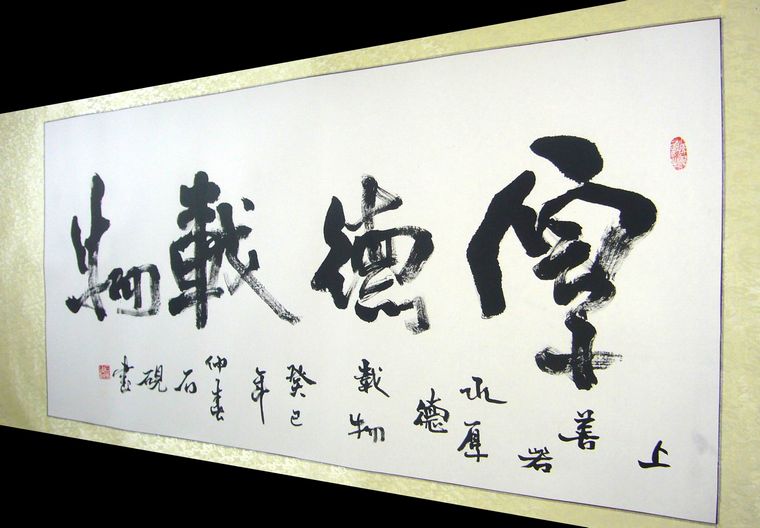 厚德載物
上善若水厚德載物癸巳年仲春石硯書